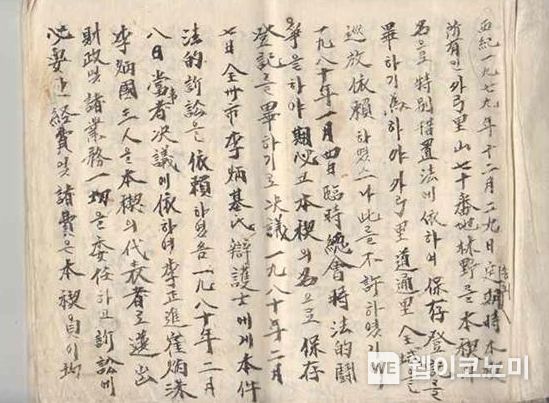 西紀一九七九年十二月二九日 定期時本
所有인 外弓里山七十番地林野를 本楔
名으로 特別措置法에 依하여 保存登記를
畢하기 爲하야 外弓里 道通里
放依頼 하였으나 此를 不許하였
一九八十年一月四日 臨時總會時 法的鬪
爭을 하야 期必코 本楔의 名으로 保存
登記를 畢하기로 決議 一九八十年二月
七日 全州市 李炳基氏 辯護士에게 本件
法的 訴訟을 依頼하였음 一九八十年二月
八日 當者決議에 依하여 李正進 崔炳洙
李炳國 三人을 本楔의 代表者로 選出
財政및 諸業務 一切을 委任하고 訴訟에
必要한 経費및 諸費은 本楔員이
웹이코노미